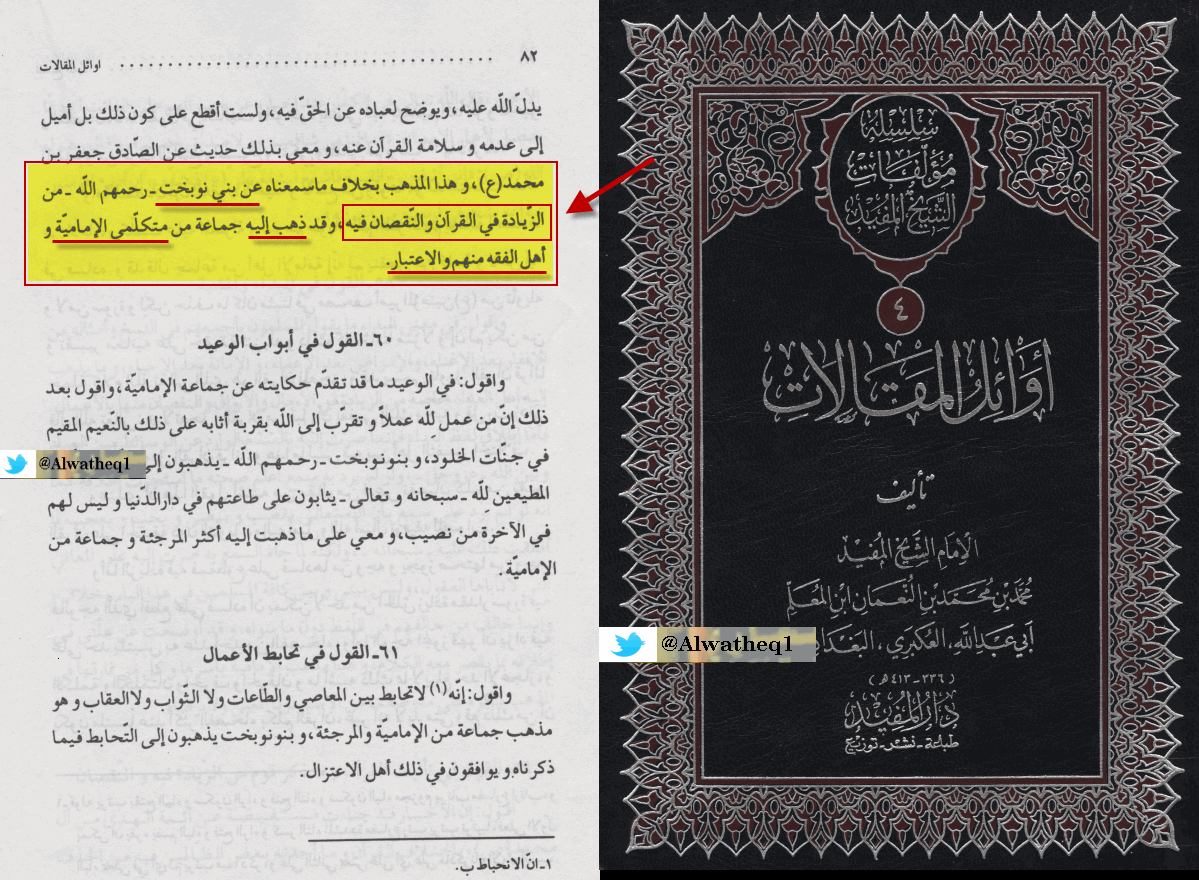 ٨٢ اوائل المقالات
يدلّ اللّه عليه، ويوضح لعباده عن الحقّ فيه، ولست أقطع على كون ذلك بل أميل
إلى عدمه و سلامة القرآن عنه، و معي بذلك حديث عن الصّادق جعفر بن
محمّد(ع)، و هذا المذهب بخلاف ماسمعناه عن بني نوبخت ـ رحمهم اللّه ـ من
الزّيادة في القرآن والنّقصان فيه، وقد ذهب إليه جماعة من متكلّمى الإماميّة و
أهل الفقه منهم والاعتبار.
٦٠ـ القول في أبواب الوعيد
واقول: في الوعيد ما قد تقدّم حكايته عن جماعة الإماميّة، واقول بعد
ذلك إنّ من عمل للّه عملاً و تقرّب إلى اللّه بقربة أثابه على ذلك بالنّعيم المقيم
في جنّات الخلود، و بنونوبخت ـ رحمهم اللّه ـ يذهبون إلى
المطيعين للّه ـ سبحانه و تعالى ـ يثابون على طاعتهم في دارالدّنيا و ليس لهم
في الآخرة من نصيب، و معي على ما ذهبت إليه أكثر المرجئة و جماعة من
الإماميّة.
٦١ـ القول في تحابط الأعمال
واقول: إنّه(١) لاتحابط بين المعاصي والطّاعات ولا الثّواب ولاالعقاب و هو
مذهب جماعة من الإماميّة والمرجئة، و بنونوبخت يذهبون إلى التّحابط فيما
ذكرناه و يوافقون في ذلك أهل الاعتزال.
١ـ انّ الانحباط ب.
@Alwatheq1
سلسلة
مؤلفات
الشيخ المفيد
٤
أوائل المقالات
تأليف
الإمام الشيخ المفيد
محمد بن محمد بن النعمان ابن المعلم
أبي عبد الله، العكبري، البغدا
(٣٣٦-٤١٣ هـ)
دار المفيد
طباعة - نشر - توزيع
@Alwatheq1